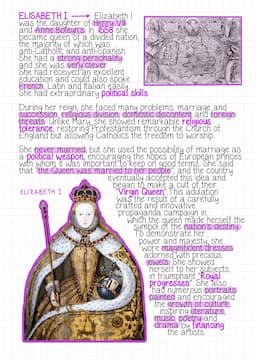 ELISABETH I → Elizabeth I
was the daughter of Henry VIII
and Anne Boleyn's. In 1558 she
became queen of a divided nation,
the majority of which was
anti-Catholic and anti-Spanish.
She had a strong personality
and she was very clever.
She had received an excellent
education and could also spoke
French, Latin and Italian easily.
She had extraordinary political skills.
During her reign, she faced many problems: marriage and
succession, religious division, domestic discontent and foreign
threats. Unlike Mary, she showed remarkable religious
tolerance, restoring Protestantism through the Church of
England but allowing Catholics the freedom to worship.
She never married, but she used the possibility of marriage as
a political weapon, encouraging the hopes of European princes
with whom it was important to keep on good terms. She said
that "the Queen was married to her people", and the country
eventually accepted this idea and
began to make a cult of their
"Virgin Queen". This adulation
was the result of a carefully
crafted and innovative
propaganda campaign in
which the queen made herself the
symbol of the nation's destiny.
To demonstrate her
power and majesty, she
wore magnificent dresses
adorned with precious
jewels. She showed
herself to her subjects
in triumphant "Royal
progresses". She also
had numerous portraits
painted and encouraged
the growth of culture,
inspiring literature,
music, poetry and
drama by financing
the artists.
ELIZABETH I